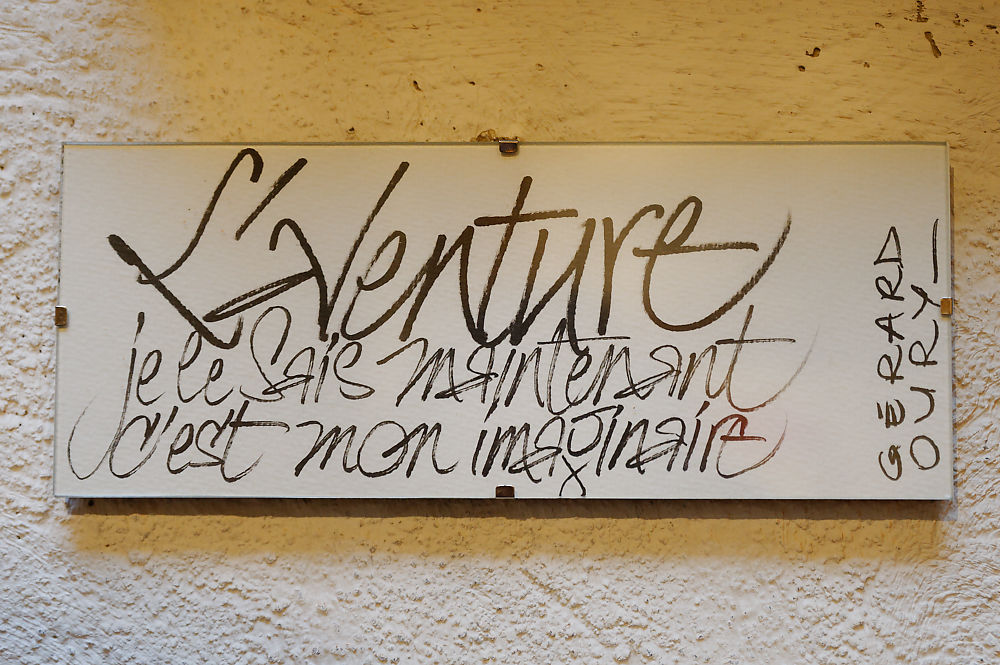 L'aventure
je le sais maintenant
c'est mon imaginaire
GÉRARD
OURY_